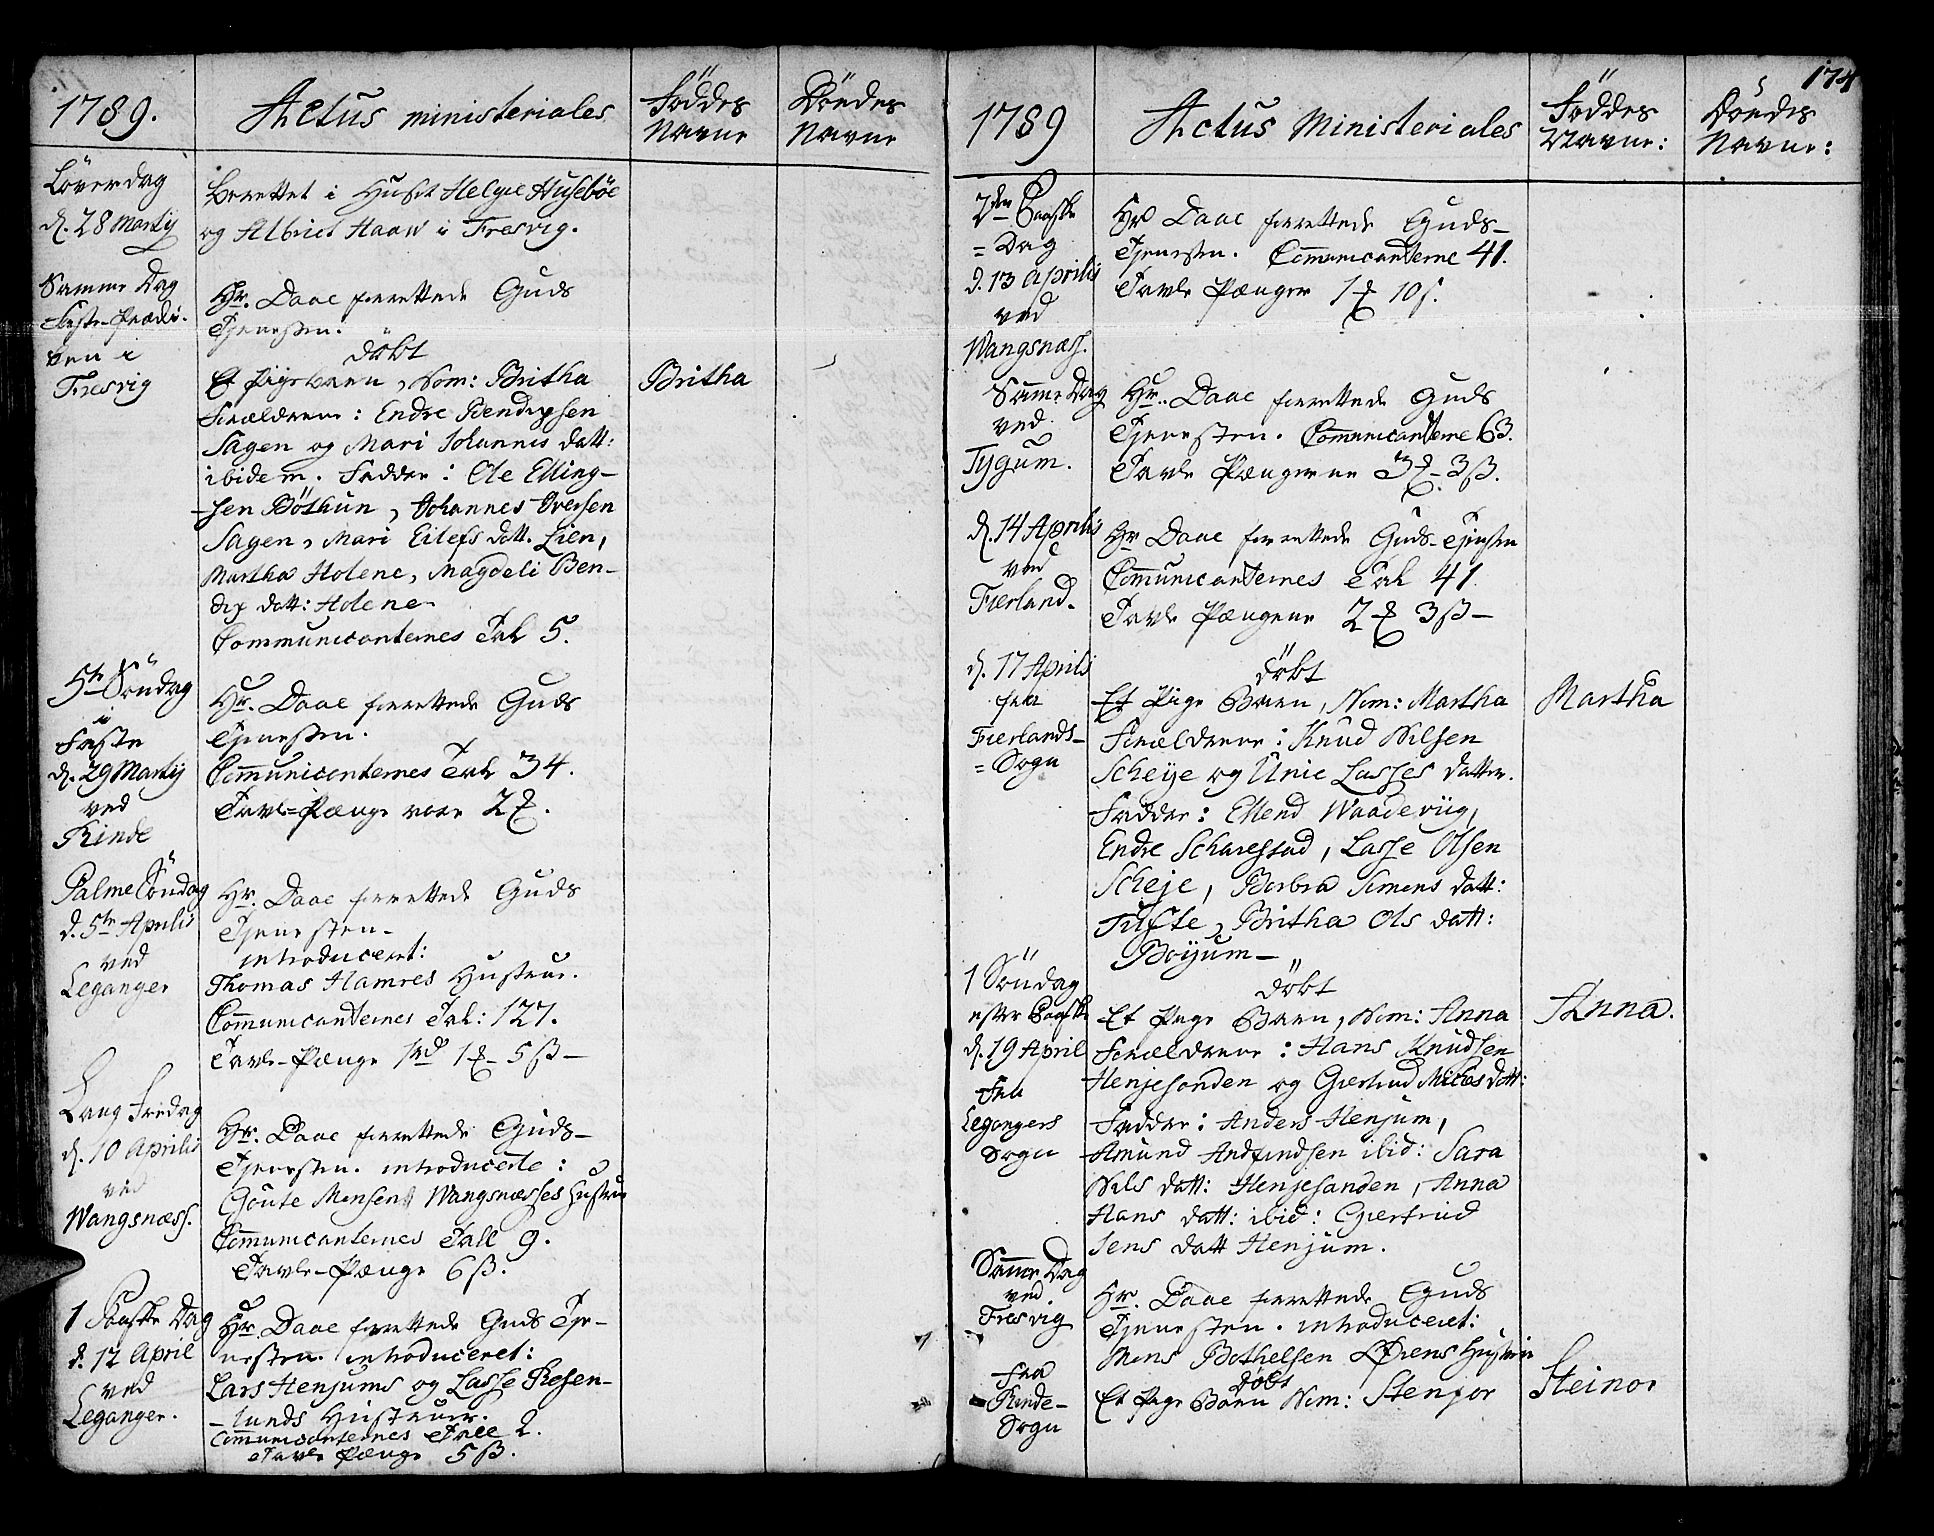 1789.
Actus ministeriales
Føddes
Navne
Döedes
Navne
Löverdag
d. 28 Martij
Berettet i Huset Helgie Huseböe
og Albrict Haaw i Fresvig.
Samme Dag
Faste-Prædi-
ken i
Fresvig
Hr. Daae forrettede Guds
Tjenesten.
döbt
Et Pige Barn, Nom: Britha
Britha
Forældrene: Endre Bendixsen
Sagen og Mari Johannis datt:
ibidem. Faddere: Ole Elling-
-sen Böthun, Johannes Iversen
Sagen, Mari Eilefs datt. Lien,
Martha Holene, Magdeli Ben-
dix datt: Holene.
Communicanternes Tal 5.
5te Söndag
i
Faste
d. 29 Martij
ved
Rinde
Hr. Daae forrettede Guds
Tjenesten.
Communicanternes Tal 34.
Tavle-Penge vare 2
Palme Söndag
d. 5te Aprilis
ved
Leganger
Hr. Daae forrettede Guds
Tjenesten-
introduceret:
Thomas Hamres Hustrue.
Communicanternes Tal: 127.
Tavle-Penge 1rd 1 5 ß-
Lang Fredag
d. 10 Aprilis
ved
Wangsnæss.
Hr. Daae forrettede Guds-
Tjenesten. introducerte:
Goute Monsens Wangsnæsses Hustrue
Communicanternes Tall 9.
Tavle-Penge 6 ß.
1 Paaske Dag
d. 12 April
ved
Leganger.
Hr. Daae forrettede Guds Tje-
nesten. introduceret:
Lars Henjums og Lasse Rosen-
-lunds Hustruer.
Communicanternes Tall 2.
Tavle Penge 5 ß.
174
1789
Actus Ministeriales
Føddes
Navne:
Döedes
Navne:
2den Paaske
=Dag
d. 13 Aprilis
ved
Wangsnæss.
Hr Daae forrettede Guds-
Tjenesten. Communicanterne 41.
Tavle Penger 1 10 s.
Samme Dag
ved
Tygum.
Hr. Daae forrettede Guds
Tjenesten. Communicanterne 63.
Tavle Pengerne 3 - 3 ß.
d. 14 Aprilis
ved
Fierland.
Hr Daae forrettede Guds-Tjensten
Communicanternes Tal 41.
Tavle Pengene 2 3 ß-
d. 17 Aprilis
fra
Fierlands-
=Sogn
döbt
Et Pige Barn, Nom: Martha
Martha
Forældrene: Knud Nilsen
Scheije og Unie Lasses datter.
Faddere: Ellend Waadeviig,
Endre Scharestad, Lasse Olsen
Scheje, Barbra Simens datt:
Tufte, Britha Ols datt:
Böyum-
1 Söndag
efter Paaske
d. 19 April
Fra
Legangers
Sogn
döbt
Et Pige Barn, Nom: Anna
Anna.
Forældrene: Hans Knudsen
Henjesanden og Giertrud Michels datt:
Faddere: Anders Henjum,
Amund Andfindsen ibid: Sara
Nils datt: Henjesanden, Anna
Hans datt: ibid: Giertrud
Jens datt Henjum.
Samme Dag
ved
Fresvig
Hr. Daae forrettede Guds
Tjenesten. introduceret:
Mons Bothelsen Ørens Hustrue
Fra
Rinde-
Sogn
döbt
Et Pige Barn Nom: Stenjor
Steinor